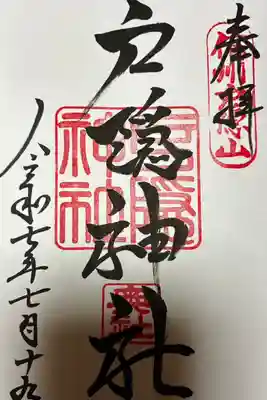 奉拝
戸隠神社
戸隠神社
令和七年七月十九